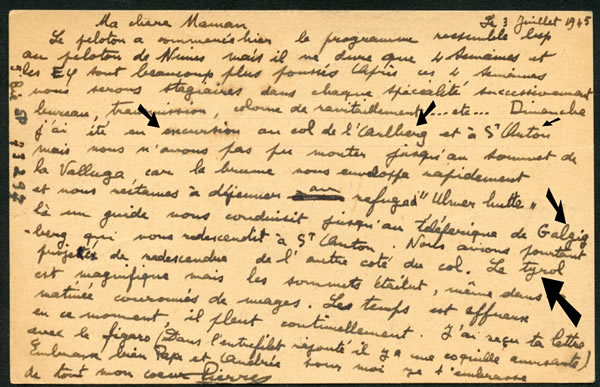 Le 3 Juillet 1945
Ma chere Maman
Le peloton a commencé hier le programme ressemble bcp
au peloton de Nimes mais il ne dure que 4 semaines et
les sont beaucoup plus poussés Après ces 4 semaines
nous serons stagiaires dans chaque spécialité successivement
bureau, transmission, colonne de ravitaillement....etc... Dimanche
j'ai été en excursion au col de l'Arlberg et à St Anton
mais nous n'avons pas pu monter jusqu'au sommet de
la Valluga car la brume nous enveloppa rapidement
et nous restames à déjeuner au refuge "Ulmer hutte"
là un guide nous conduisit jusqu'au téléferique de Galzig
-berg qui nous redescendit à St Anton. Nous avions pourtant
projeté de redescendre de l'autre coté du col. Le tyrol
est magnifique mais les sommets étaient, même dans la
matinée couronnés de nuages. Les temps est affreux
en ce moment, il pleut continuellement. J'ai reçu ta lettre
avec le figaro (Dans l'entrefilet il y a une coquille amusante)
Embrasse bien Papa et Andrée pour moi je t'embrasse
de tout mon coeur Pierre